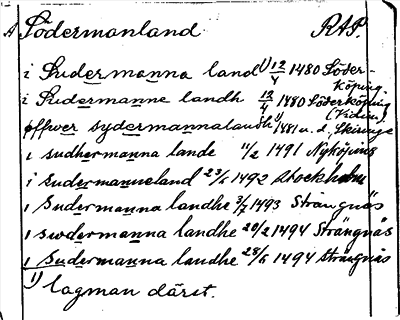 A Södermanland RAP.
i Sudermanna land 1) 12/4 1480 Söder-
köping
i Sudermanne landh 12/4 1480 Söderköping
(Vidim.)
øffwer sydermannalandh 1) 1481 u. d. Skeninge
i sudhermanna lande 11/2 1491 Nyköping
i Sudermanneland 23/5 1492 Stockholm
i Sudermanna landhe 3/7 1493 Strängnäs
i swdermanna landhe 20/2 1494 Strängnäs
i Sudermanna landhe 28/6 1494 Strängnäs
1) lagman därst.